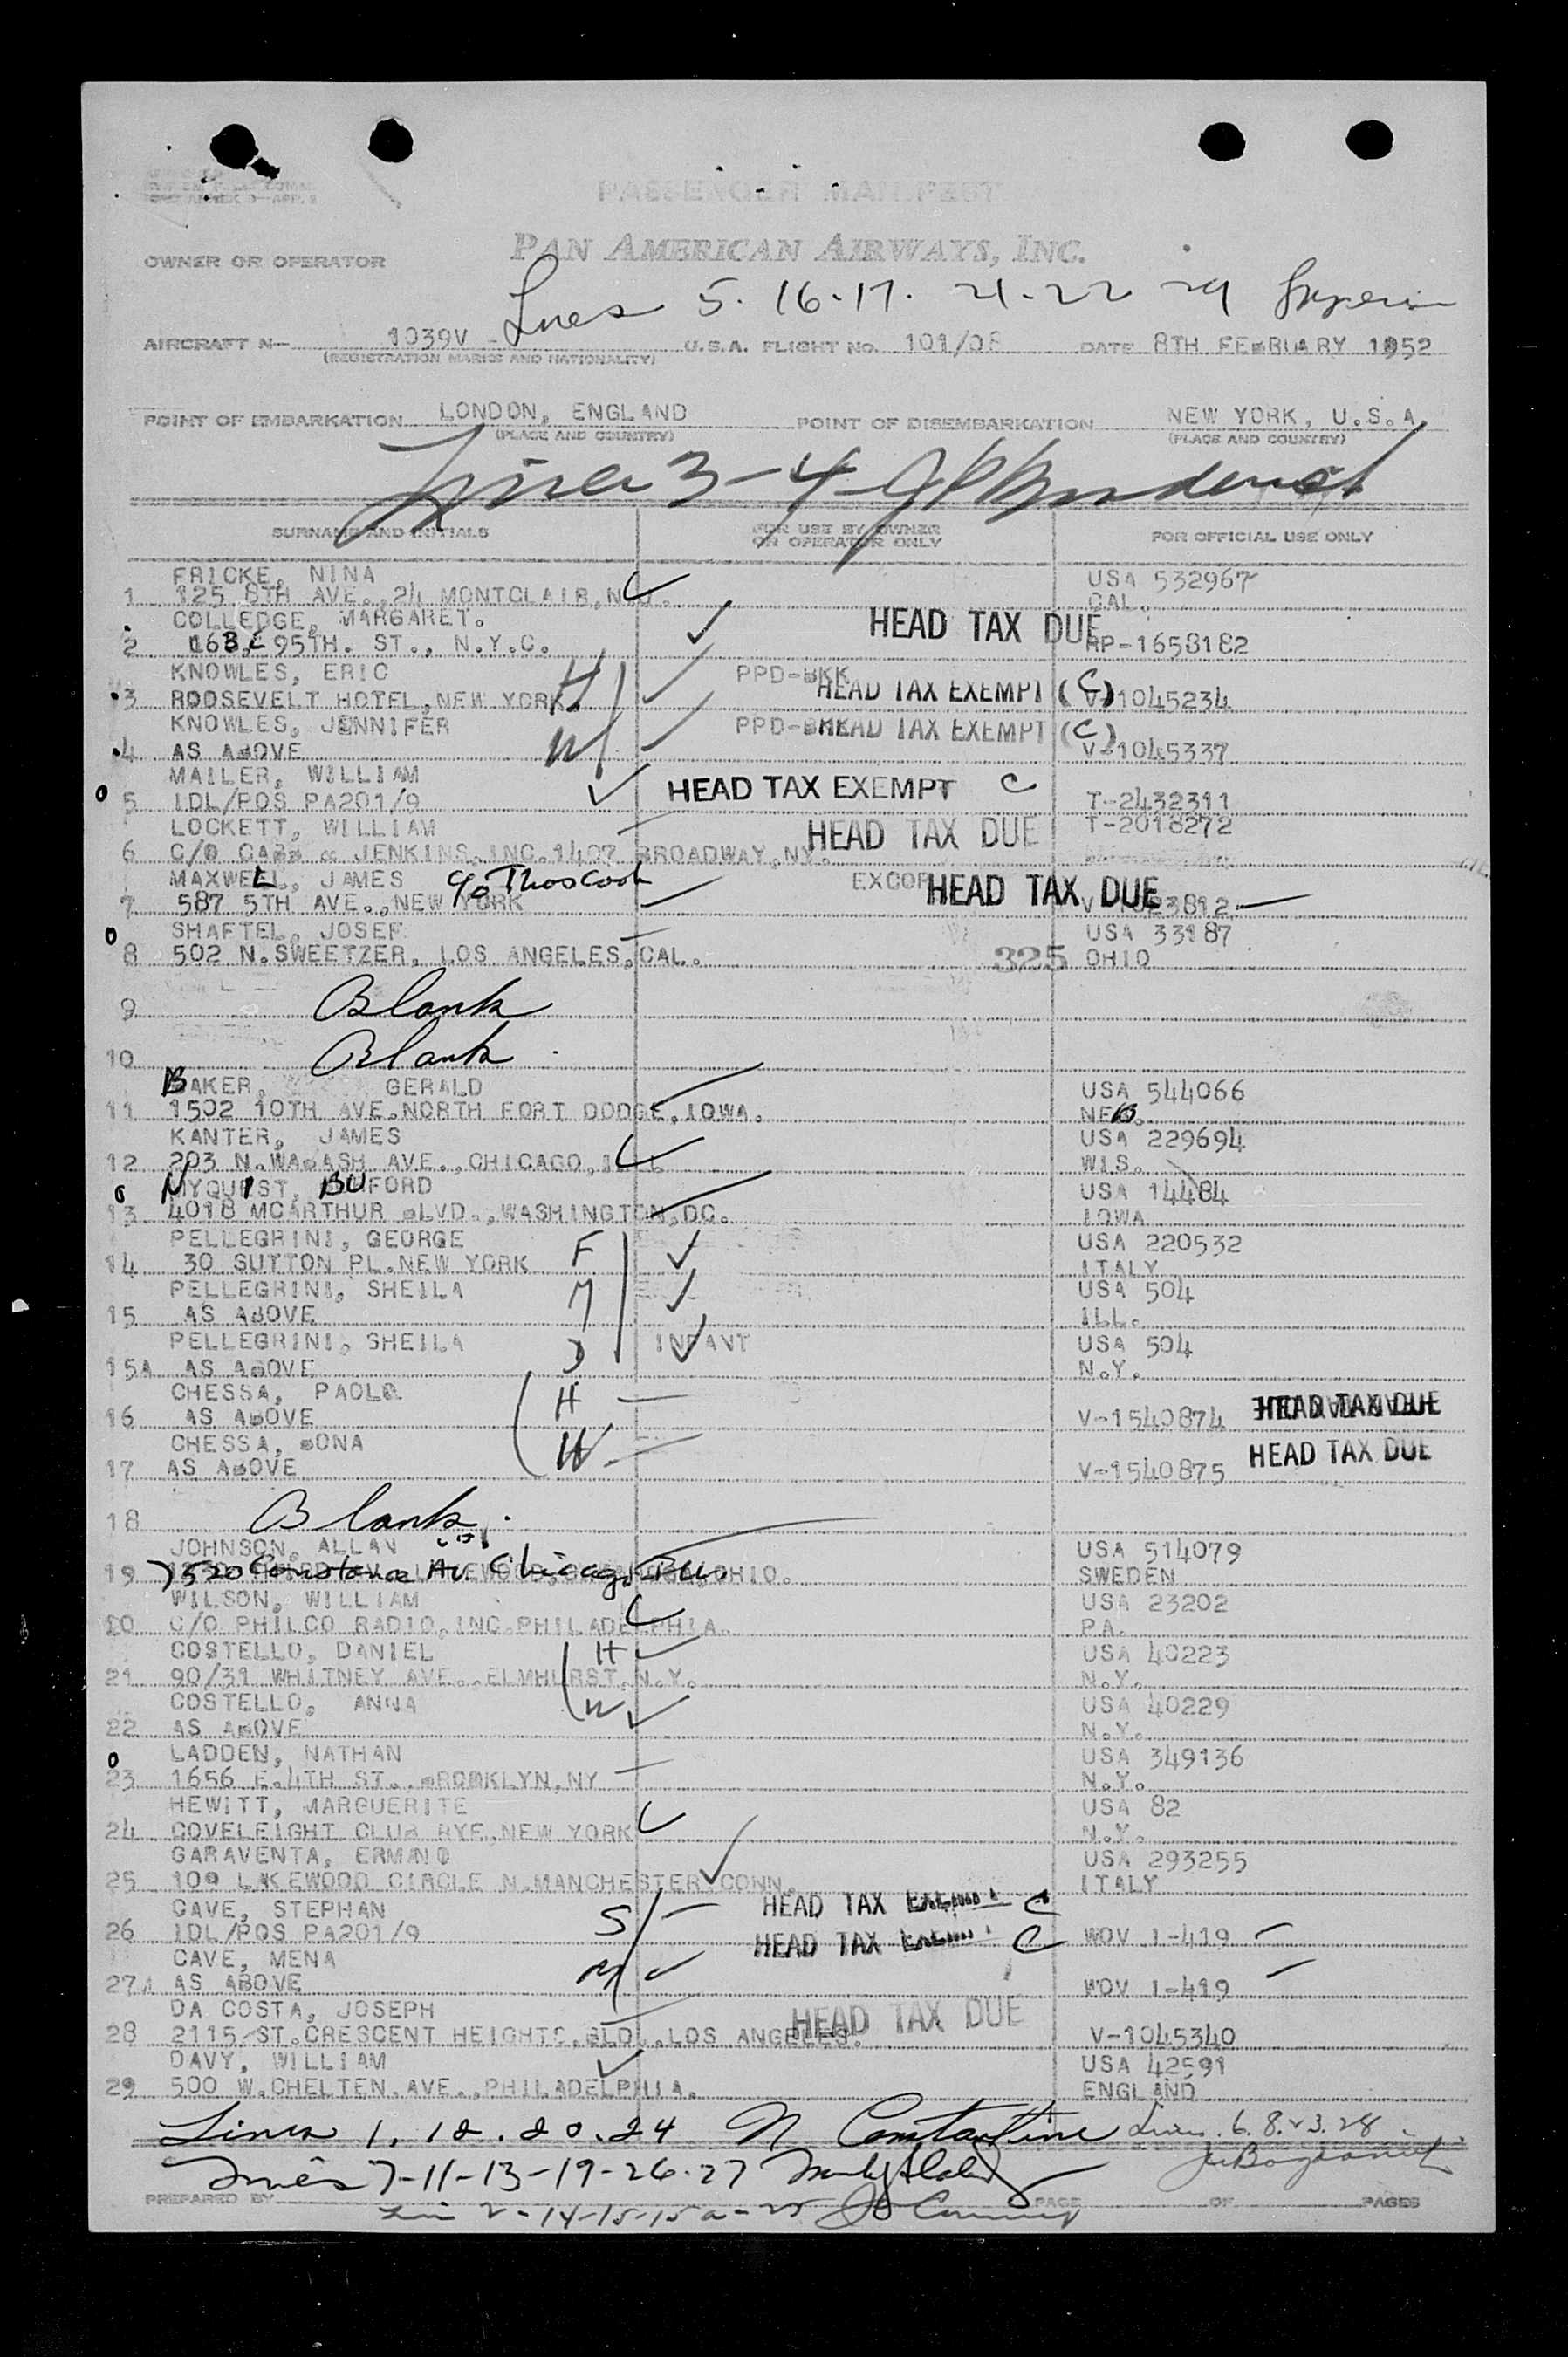 PASSENGER MANIFEST
PAN AMERICAN AIRWAYS, INC.
OWNER OR OPERATOR
Lines 5. 16-17. 21-22 29
AIRCRAFT N— 1039V U.S.A. FLIGHT NO. 101/08 DATE 8TH FEBRUARY 1952
(REGISTRATION MARKS AND NATIONALITY)
POINT OF EMBARKATION LONDON, ENGLAND POINT OF DISEMBARKATION NEW YORK, U.S.A.
(PLACE AND COUNTRY) (PLACE AND COUNTRY)
Lines 3-4
SURNAME AND INITIALS FOR USE BY OWNER OR OPERATOR ONLY FOR OFFICIAL USE ONLY
FRICKE, NINA USA 532967
1 125 8TH AVE., 24 MONTCLAIR, N.J. CAL.
COLLEDGE, MARGARET. HEAD TAX DUE
2 163 E 95TH. ST., N.Y.C. RP-1658182
KNOWLES, ERIC H PPD-BKK
3 ROOSEVELT HOTEL, NEW YORK. HEAD TAX EXEMPT (C) V-1045234
KNOWLES, JENNIFER W PPD-BKK HEAD TAX EXEMPT (C)
4 AS ABOVE V-1045337
MAILER, WILLIAM
5 IDL/POS PA201/9 HEAD TAX EXEMPT C T-2432311
LOCKETT, WILLIAM HEAD TAX DUE T-2018272
6 C/O JENKINS, INC. 1407 BROADWAY, NY.
MAXWELL, JAMES c/o Thos Cook EXCOR HEAD TAX DUE
7 587 5TH AVE., NEW YORK V-1023812
SHAFTEL, JOSEF USA 33187
8 502 N. SWEETZER, LOS ANGELES, CAL. 325 OHIO
9 Blank
10 Blank
BAKER, GERALD USA 544066
11 1502 10TH AVE. NORTH FORT DODGE, IOWA. NEB.
KANTER, JAMES USA 229694
12 203 N. WABASH AVE., CHICAGO, ILL WIS.
NYQUIST, BUFORD USA 14484
13 4018 MCARTHUR BLVD., WASHINGTON, DC. IOWA
PELLEGRINI, GEORGE F USA 220532
14 30 SUTTON PL. NEW YORK ITALY
PELLEGRINI, SHEILA M USA 504
15 AS ABOVE ILL.
PELLEGRINI, SHEILA D INFANT USA 504
15A AS ABOVE N.Y.
CHESSA, PAOLO H HEAD TAX DUE
16 AS ABOVE V-1540874
CHESSA, BONA W HEAD TAX DUE
17 AS ABOVE V-1540875
18 Blank
JOHNSON, ALLAN USA 514079
19 7520 Constance Av. Chicago Ill. OHIO. SWEDEN
WILSON, WILLIAM USA 23202
20 C/O PHILCO RADIO, INC. PHILADELPHIA. PA.
COSTELLO, DANIEL H USA 40223
21 90/31 WHITNEY AVE., ELMHURST, N.Y. N.Y.
COSTELLO, ANNA W USA 40229
22 AS ABOVE N.Y.
LADDEN, NATHAN USA 349136
23 1656 E. 4TH ST., BROOKLYN, NY N.Y.
HEWITT, MARGUERITE USA 82
24 COVELEIGHT CLUB RYE, NEW YORK N.Y.
GARAVENTA, ERMANO USA 293255
25 109 LAKEWOOD CIRCLE N. MANCHESTER, CONN. ITALY
CAVE, STEPHAN S HEAD TAX EXEMPT C
26 IDL/POS PA201/9 HEAD TAX EXEMPT C WOV 1-419
CAVE, MENA M
27A AS ABOVE WOV 1-419
DA COSTA, JOSEPH HEAD TAX DUE
28 2115 ST. CRESCENT HEIGHTS, BLD., LOS ANGELES. V-1045340
DAVY, WILLIAM USA 42591
29 500 W. CHELTEN AVE., PHILADELPHIA. ENGLAND
Lines 1, 12. 20. 24 N Constantine Lines 6. 8. 23. 28
Lines 7-11-13-19-26-27
PREPARED BY PAGE OF PAGES
Line 2-14-15-15a-25